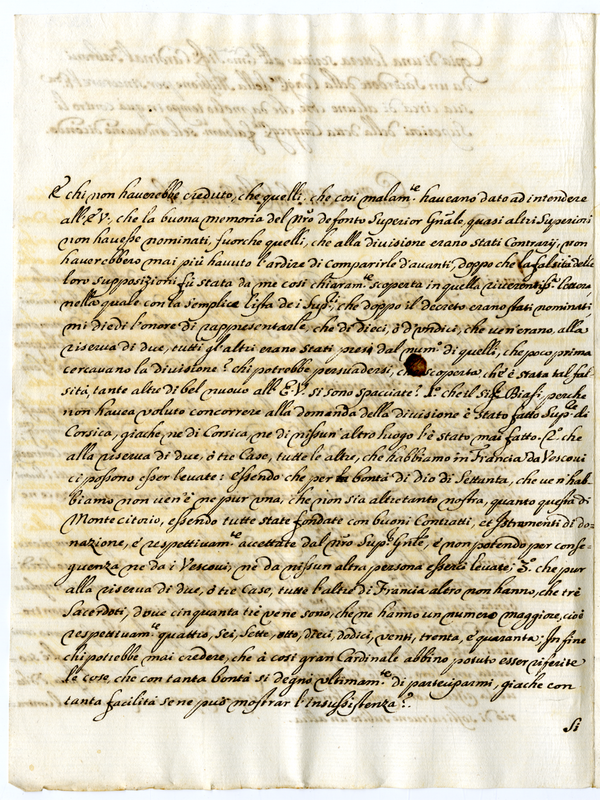 E chi non haverebbe creduto, che quelli, che così malam.te haveano dato ad intendere
all' E. V., che la buona memoria del nro defonto Superior Gnãle, quasi altri Superiori
non havesse nominati, fuorche quelli, che alla divisione erano stati Contrarij, non
haverebbero mai più havuto l'ardire di comparirle d'avanti, doppo che la falsità delle
loro supposizioni fù stata da me così chiaram.te scoperta in quella riverentiss.a lettera
nella quale con la semplice lista de i Sup.ri, che doppo il decreto erano stati nominati,
mi diedi l'onore di rappresentarle, che di dieci, ò d'undici, che ven'erano, alla
riserva di due, tutti gl'altri erano stati presi dal num.o di quelli, che poco prima
cercavano la divisione? chi potrebbe persuadersi, che scoperta, che è stata tal fal-
sità, tante altre di bel nuovo all' E. V. si sono spacciate? 1.o che il Sig.r Biasi, perche
non havea voluto concorrere alla domanda della divisione è stato fatto Sup.re di
Corsica, giache, ne di Corsica, ne di nissun'altro luogo l'è stato mai fatto. 2.o che
alla riserva di due, ò tre Case, tutte le altre, che habbiamo in Francia da Vescovi
ci possono esser levate: essendo che per la bontà di Dio di Settanta, che ve n'hab-
biamo non ven'è ne pur una, che non sia altretanto nostra, quanto questa di
Monte citorio, essendo tutte state fondate con buoni Contratti, et Istrumenti di do-
nazione, e respettivam.te accettate dal nro Sup.r Gnãle, e non potendo per conse-
guenza ne da i Vescovi, ne da nissun altra persona esserci levate; 3.o che pur
alla riserva di due, ò tre Case, tutte l'altre di Francia altro non hanno, che trè
Sacerdoti, dove cinquanta trè vene sono, che ne hanno un numero maggiore, cioè
respettivam.te quattro, sei, sette, otto, dieci, dodici, venti, trenta, e quaranta: In fine
chi potrebbe mai credere, che à così gran Cardinale abbino potuto esser riferite
le cose, che con tanta bontà si degnò ultimam.te di parteciparmi, giache con
tanta facilità se ne può mostrar l'insussistenza?.
Si